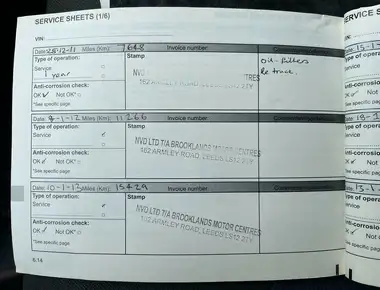 SERVICE SHEETS (1/6)
VIN:
Date: Miles (Km): 7648 Invoice number:
Type of operation: Stamp
Service
1 year
NVD
TRES
162 ARMLEY ROAD, LEEDS LS12
oil + filters
Anti-corrosion check:
OK ✓ Not OK*
*See specific page
Date: 9-1-12 Miles (Km): 11266 Invoice number:
Type of operation: Stamp
Service
NVD LTD T/A BROOKLANDS MOTOR CENTRES
162 ARMLEY ROAD, LEEDS LS12 2TY
Anti-corrosion check:
OK ✓ Not OK*
*See specific page
Date: 10-1-13 Miles (Km): 15429 Invoice number:
Type of operation: Stamp
Service
NVD LTD T/A BROOKLANDS MOTOR CENTRES
162 ARMLEY ROAD, LEEDS LS12 2TY
Anti-corrosion check:
OK ✓ Not OK*
*See specific page
6.14
SERVICE S
VIN:
Type of oper
Service
Anti-corros
OK
*See specific
Type of ope
Service
Anti-corros
OK
*See specific
Type of op
Service
Anti-corro
OK
*See specific